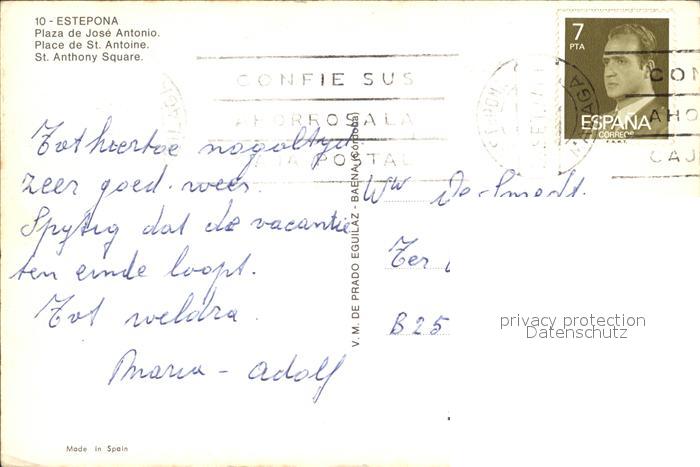 10 - ESTEPONA
Plaza de José Antonio.
Place de St. Antoine.
St. Anthony Square.
CONFIE SUS
AHORROS A LA
CAJA POSTAL
7
PTA
ESPAÑA
CORREOS
F.N.M.T.
MALAGA
CON
AHO
CAJ
Tot hiertoe nog altijd
zeer goed weer.
Spijtig dat de vacantie
ten einde loopt.
Tot weldra.
Maria - Adolf
V. M. DE PRADO EGUILAZ - BAENA (Córdoba)
Ww De Smedt.
Ter
B 25
privacy protection
Datenschutz
Made in Spain